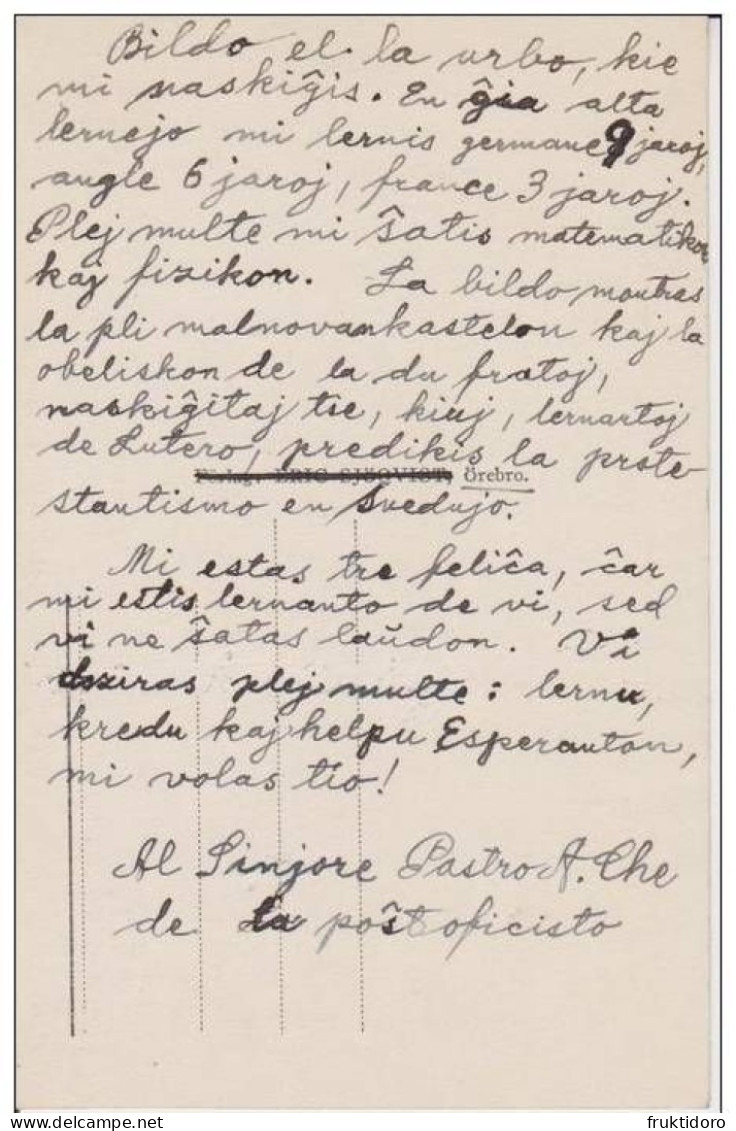 Bildo el la urbo, kie
mi naskiĝis. En ĝia alta
lernejo mi lernis germane 9 jaroj,
angle 6 jaroj, france 3 jaroj.
Plej multe mi ŝatis matematikon
kaj fizikon. La bildo montras
la pli malnovan kastelon kaj la
obeliskon de la du fratoj,
naskiĝitaj tie, kiuj, lernantoj
de Lutero, predikis la prote-
Örebro.
stantismo en Svedujo.
Mi estas tre feliĉa, ĉar
mi estis lernanto de vi, sed
vi ne ŝatas laŭdon. Vi
deziras plej multe: lernu,
kredu kaj helpu Esperanton,
mi volas tio!
Al Sinjore Pastro A. Che
de la poŝtoficisto
fruktidoro